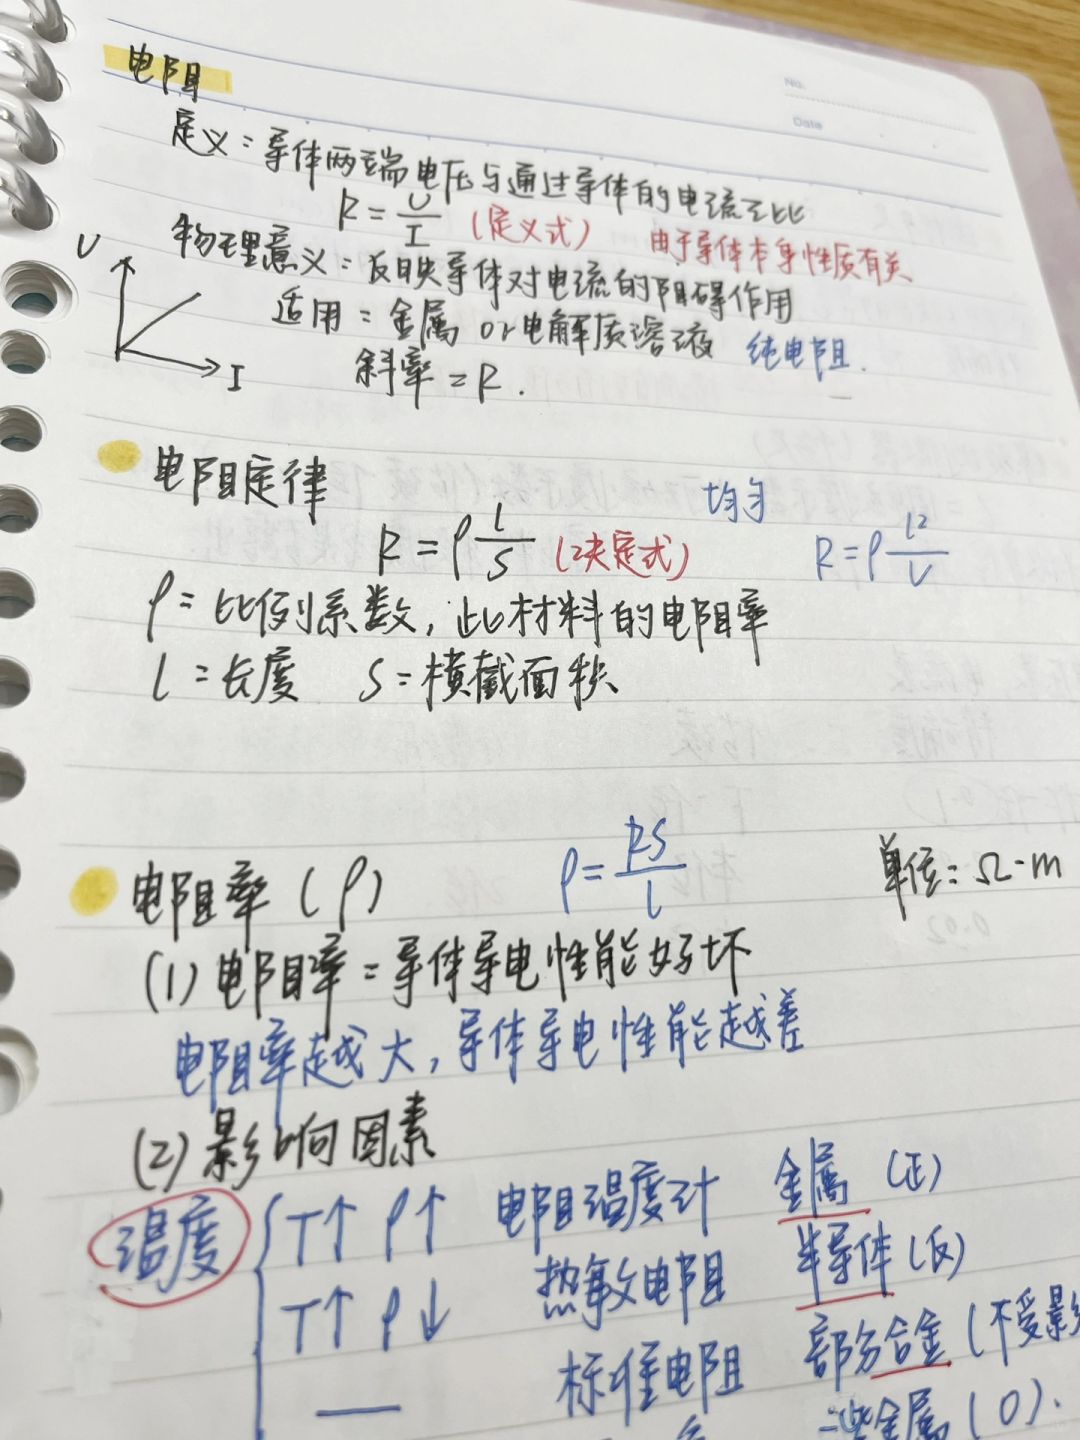 No.
Date
电阻
定义：导体两端电压与通过导体的电流之比
R = U/I (定义式) 由于导体本身性质有关
物理意义：反映导体对电流的阻碍作用
适用：金属 or 电解质溶液 纯电阻.
斜率 = R.
U
I
电阻定律
均匀
R = ρ l/S (决定式) R = ρ l²/V
ρ = 比例系数, 此材料的电阻率
l = 长度 S = 横截面积
电阻率 (ρ) ρ = RS/l 单位: Ω·m
(1) 电阻率 = 导体导电性能好坏
电阻率越大, 导体导电性能越差
(2) 影响因素
温度 { T↑ ρ↑ 电阻温度计 金属 (正)
T↑ ρ↓ 热敏电阻 半导体 (反)
— 标准电阻 部分合金 (不受影
一些金属 (0).